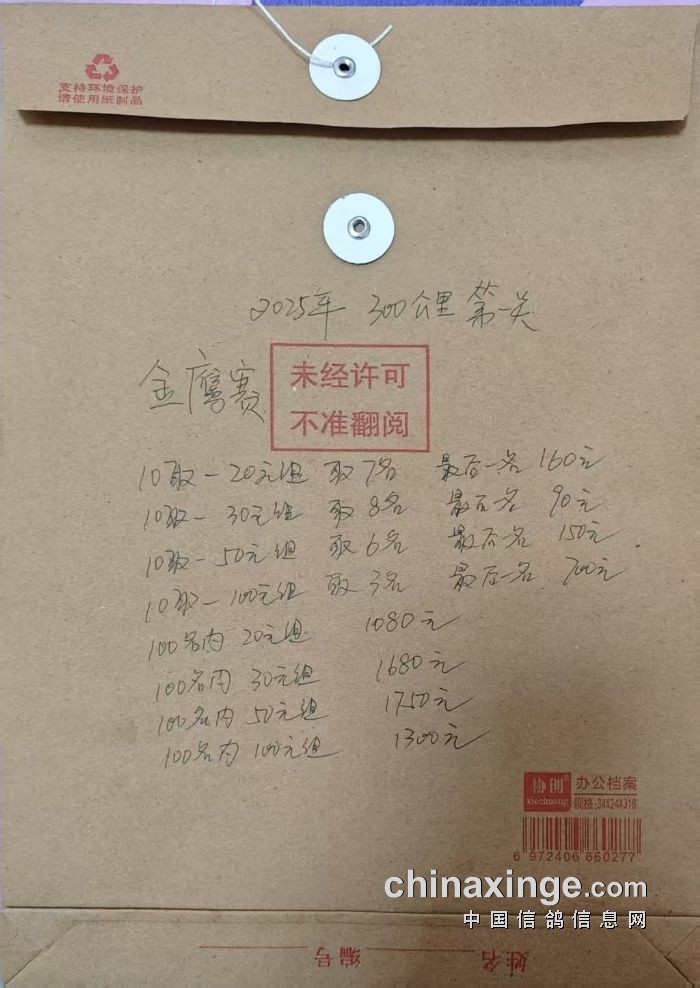 支持环境保护
请使用纸制品
2025年 300公里 第一关
金鹰赛
未经许可
不准翻阅
10取一20元组 取7名 最后一名 160元
10取一30元组 取8名 最后一名 90元
10取一50元组 取6名 最后一名 150元
10取一100元组 取3名 最后一名 700元
100名内 20元组 1080元
100名内 30元组 1680元
100名内 50元组 1750元
100名内 100元组 1300元
协创®
xiechuang
办公档案
规格:34X24X318
6 972406 660277
chinaxinge.com
中国信鸽信息网
姓名
编号